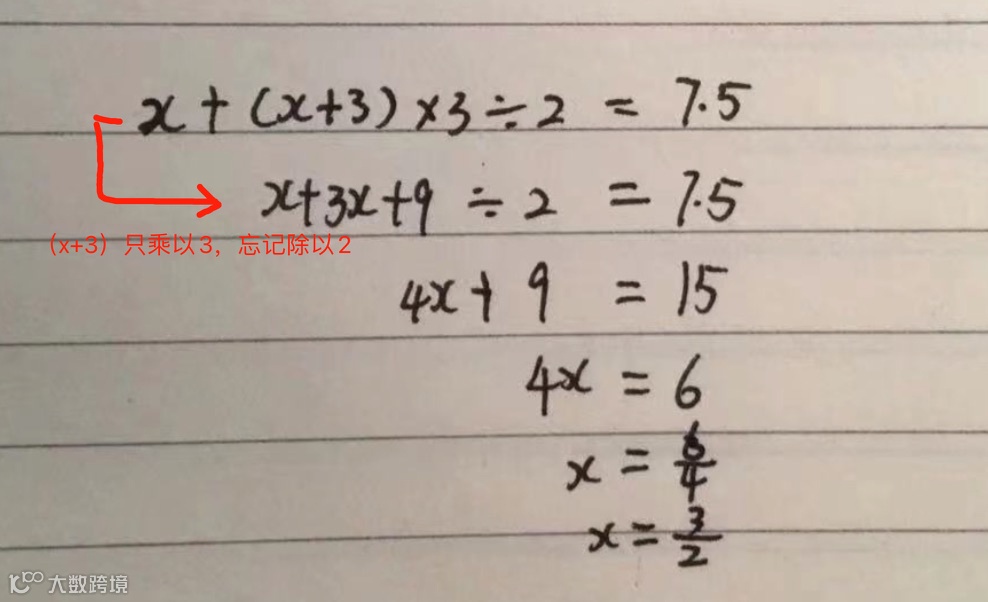 x + (x+3) ×3 ÷ 2 = 7.5
x+3x+9 ÷ 2 = 7.5
(x+3) 只乘以3，忘记除以2
4x + 9 = 15
4x = 6
x = 6/4
x = 3/2
大数跨境